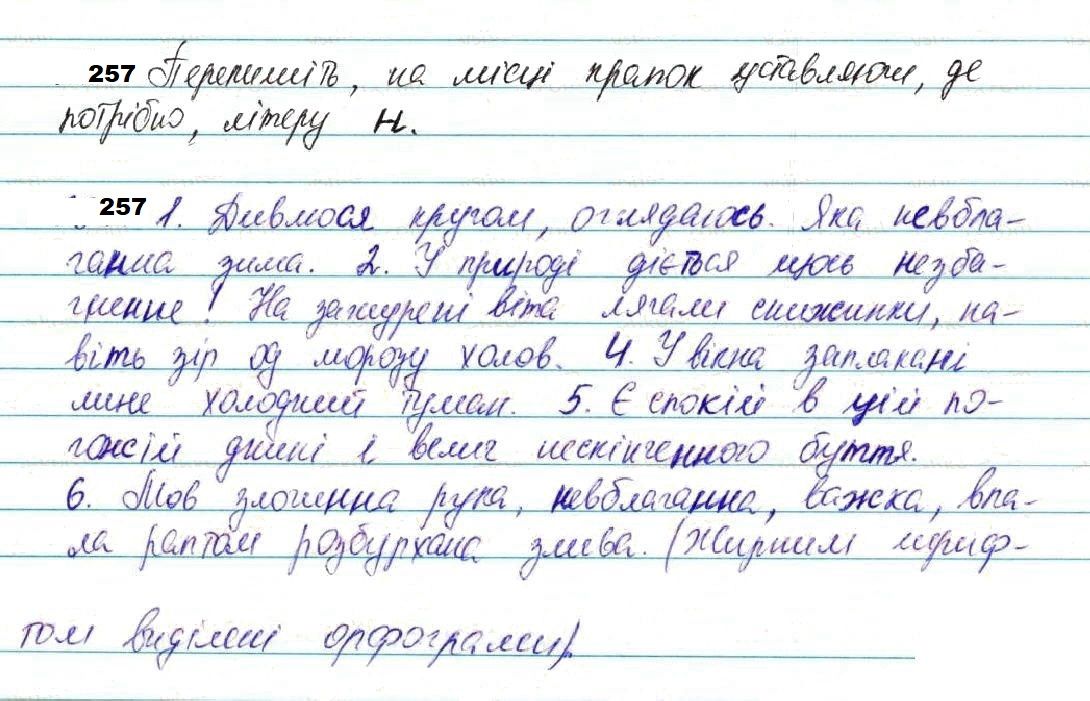 257 Перепишіть, на місці крапок уставляючи, де
потрібно, літеру н.
257 1. Дивлюся кругом, оглядаюсь. Яка невбла-
ганна зима. 2. У природі діється щось незба-
гненне! На зажурені віти лягали сніжинки, на-
віть зір од морозу холов. 4. У вікна заплакані
лине холодний туман. 5. Є спокій в цій по-
гожій днині і велич нескінченного буття.
6. Мов злочинна рука, невблаганна, важка, впа-
ла раптом розбурхана злива. (Жирним шриф-
том виділені орфограми).